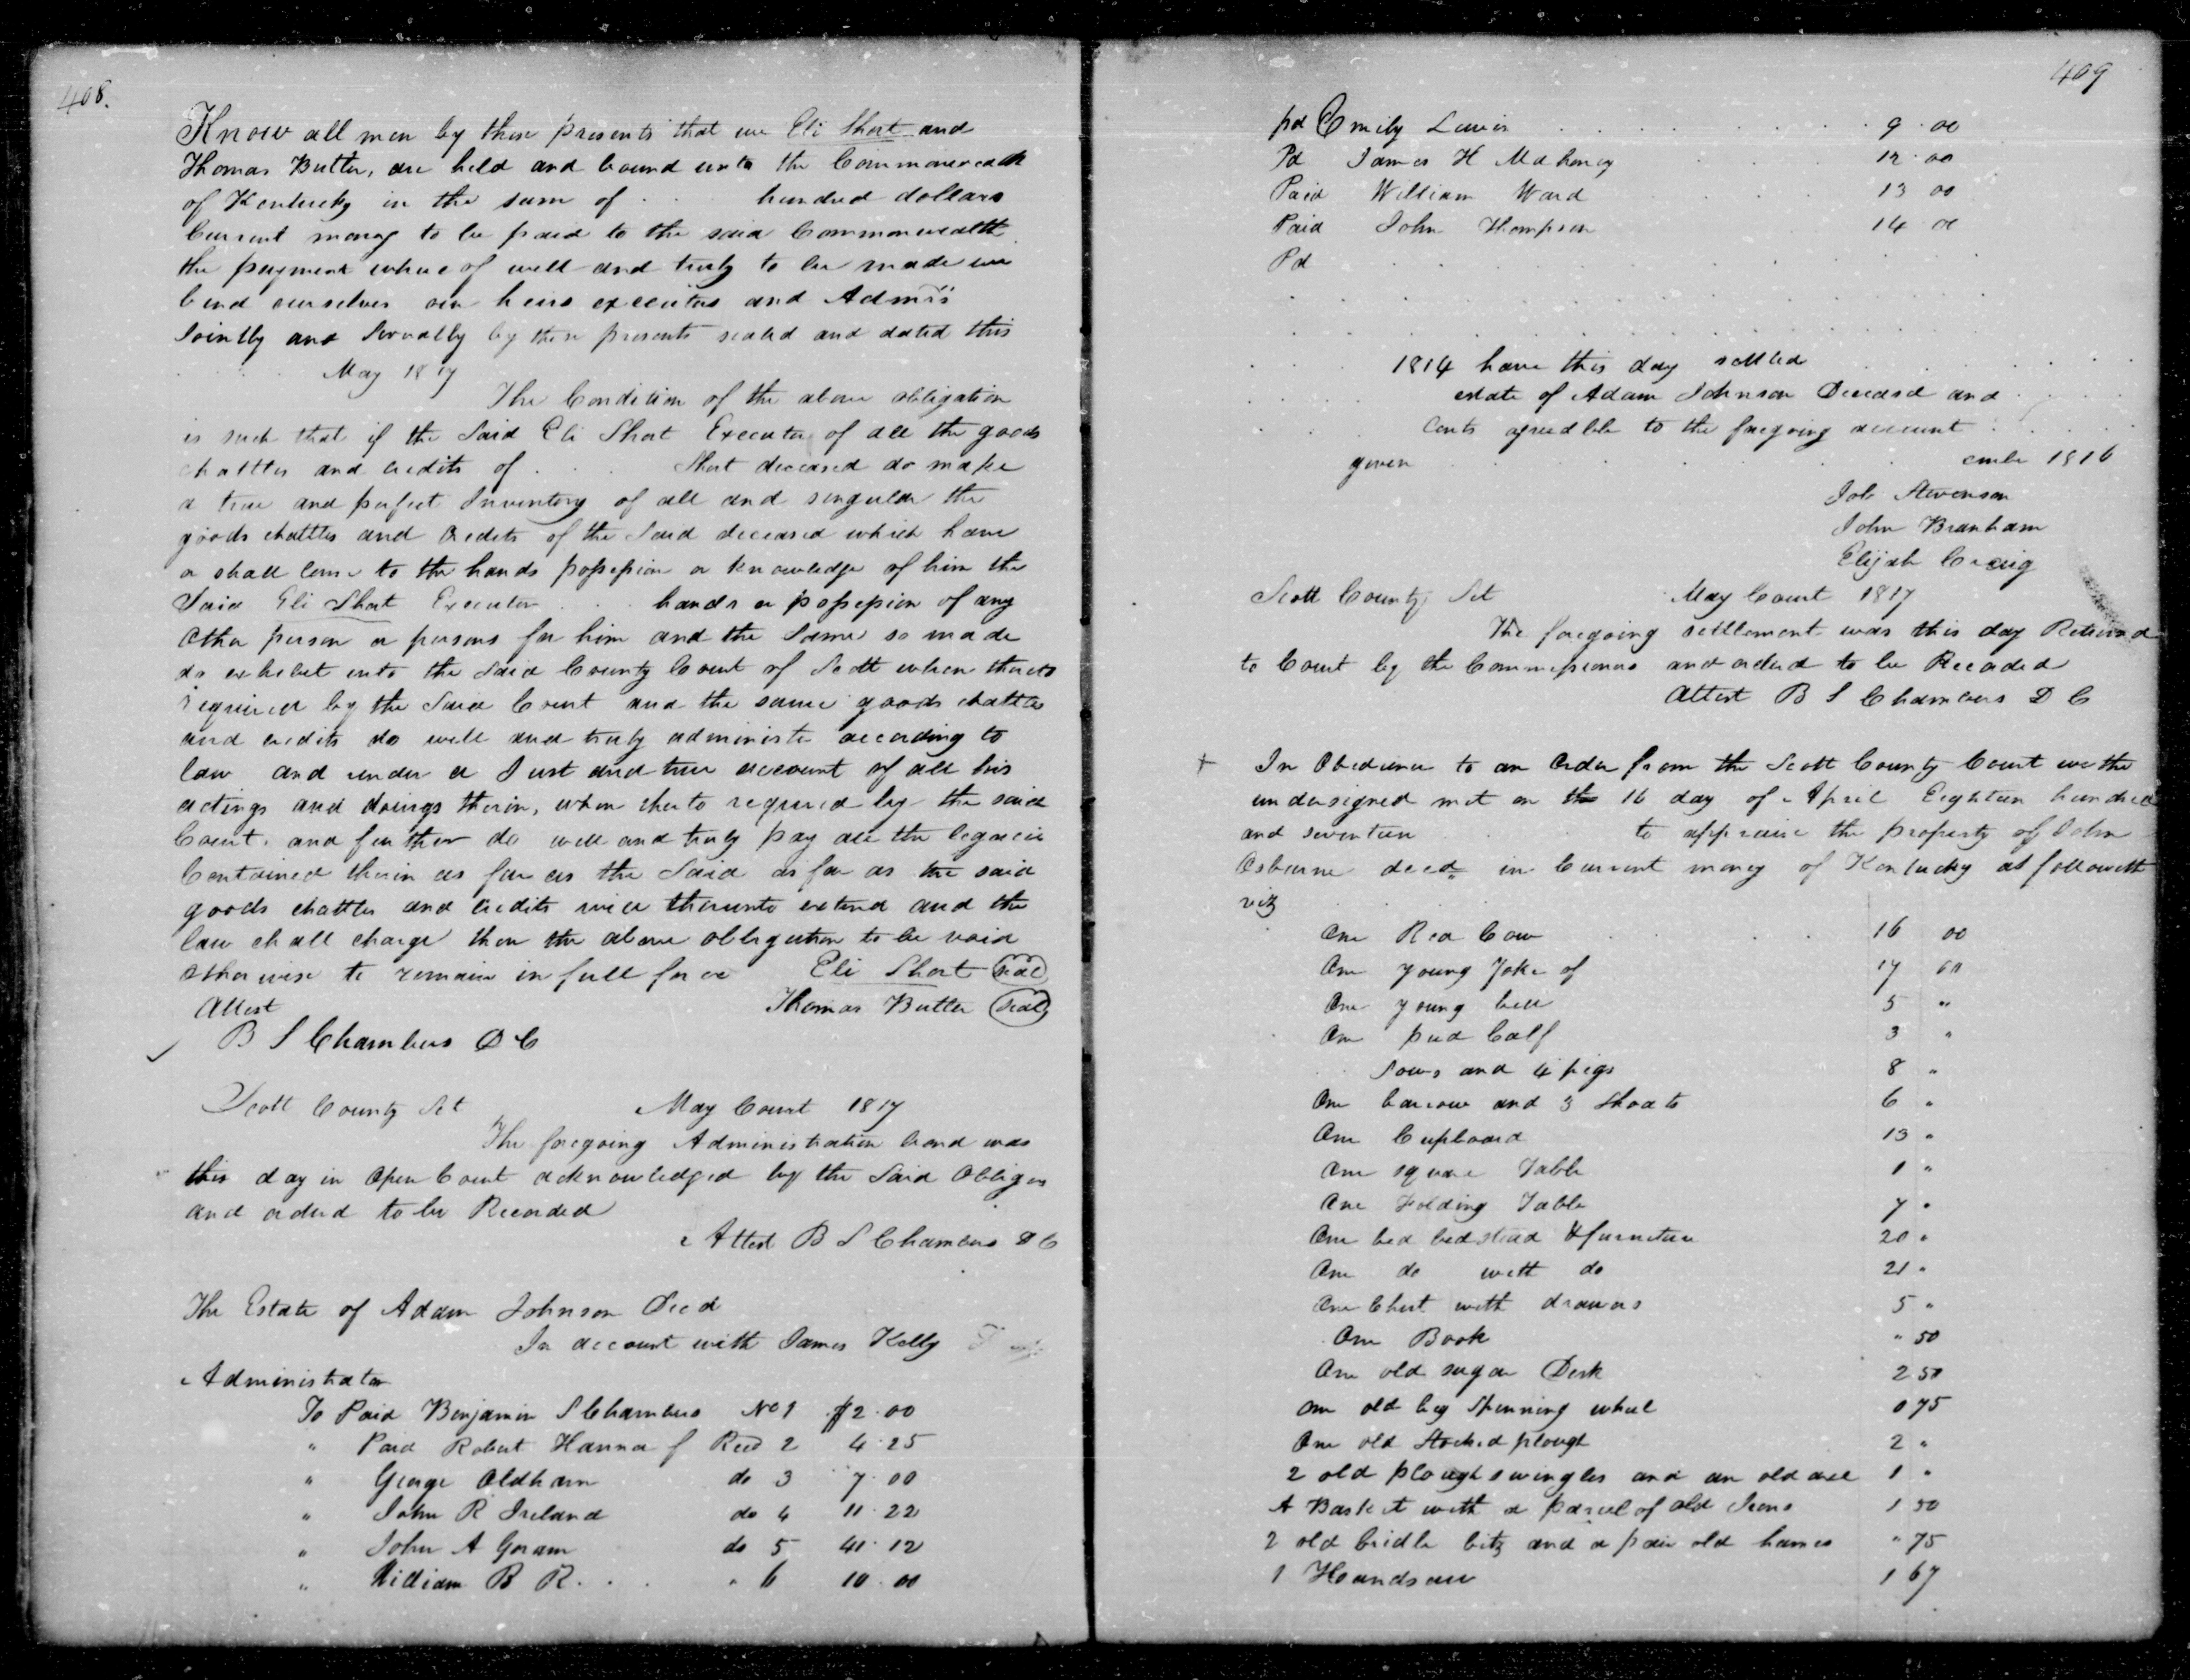 408.
Know all men by these presents that we Eli Short and
Thomas Butler, are held and bound unto the Commonwealth
of Kentucky in the sum of . . hundred dollars
Current money to be paid to the said Commonwealth
the payment whereof well and truly to be made we
bind ourselves our heirs executors and Admrs
Jointly and Severally by these presents sealed and dated this
. . . . May 1817
The Condition of the above obligation
is such that if the Said Eli Short Executor of all the goods
chattles and credits of . . . Short deceased do make
a true and perfect Inventory of all and singular the
goods chattles and credits of the Said deceased which have
or shall come to the hands possession or knowledge of him the
Said Eli Short Executor . . . hands or possession of any
Other person or persons for him and the Same so made
do exhibit into the Said County Court of Scott when thereto
required by the Said Court and the same goods chattles
and credits do well and truly administer according to
law and render a Just and true account of all his
actings and doings therin, when thereto required by the said
Court, and further do well and truly pay all the legacies
Contained therin as far as the Said as far as the said
goods chattles and credits will thereunto extend and the
law shall charge then the above obligation to be void
otherwise to remain in full force Eli Short seal
Attest Thomas Butler seal
B S Chambers D C
Scott County Sct May Court 1817
The foregoing Administration bond was
this day in Open Court acknowledged by the Said Obligors
and ordered to be Recorded
Attest B S Chambers D C
The Estate of Adam Johnson Decd
In account with James Kelly
Administrator
To Paid Benjamin S Chambers No 1 $2.00
" Paid Robert Hanna f Recd 2 4.25
" George Oldham do 3 7.00
" John R Ireland do 4 11.22
" John A Goram do 5 41.12
" William B R. . . " 6 10.00
409
pd Emily Lewis 9.00
Pd James H Mahoney 12.00
Paid William Ward 13 00
Paid John Thompson 14.00
Pd
1814 have this day settled
estate of Adam Johnson Deceased and
Cents agreeable to the foregoing account
given . . . ember 1816
Job Stevenson
John Branham
Elijah Craig
Scott County Sct May Court 1817
The foregoing settlement was this day Returned
to Court by the Commissioners and ordered to be Recorded
Attest B S Chambers D C
+ In Obedience to an Order from the Scott County Court we the
undersigned met on the 16 day of April Eighteen hundred
and seventeen to appraise the property of John
Osburne decd in Current money of Kentucky as followeth
viz
One Red Cow 16 00
One young Yoke of 17 00
One young bull 5 "
One pied Calf 3 "
Sows and 4 pigs 8 "
One barrow and 3 Shoats 6 "
One Cupboard 13 "
One square Table 1 "
One Folding Table 7 "
One bed bedstead & furniture 20 "
One do with do 21 "
One Chest with drawers 5 "
One Book " 50
One old sugar Desk 2 50
One old big Spinning wheel 0 75
One old Stocked plough 2 "
2 old plough swingles and an old axe 1 "
A Basket with a parcel of old Irons 1 50
2 old bridle bitz and a pair old hames " 75
1 Handsaw 1 67